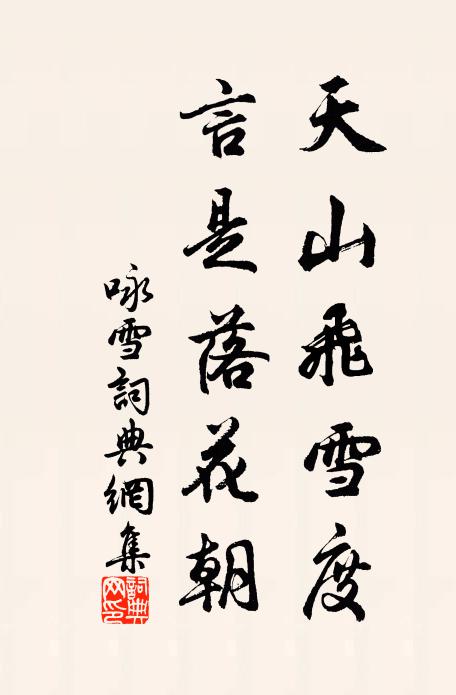 天山飛雪度
言是落花朝
咏雪詞典網集
詞典網印